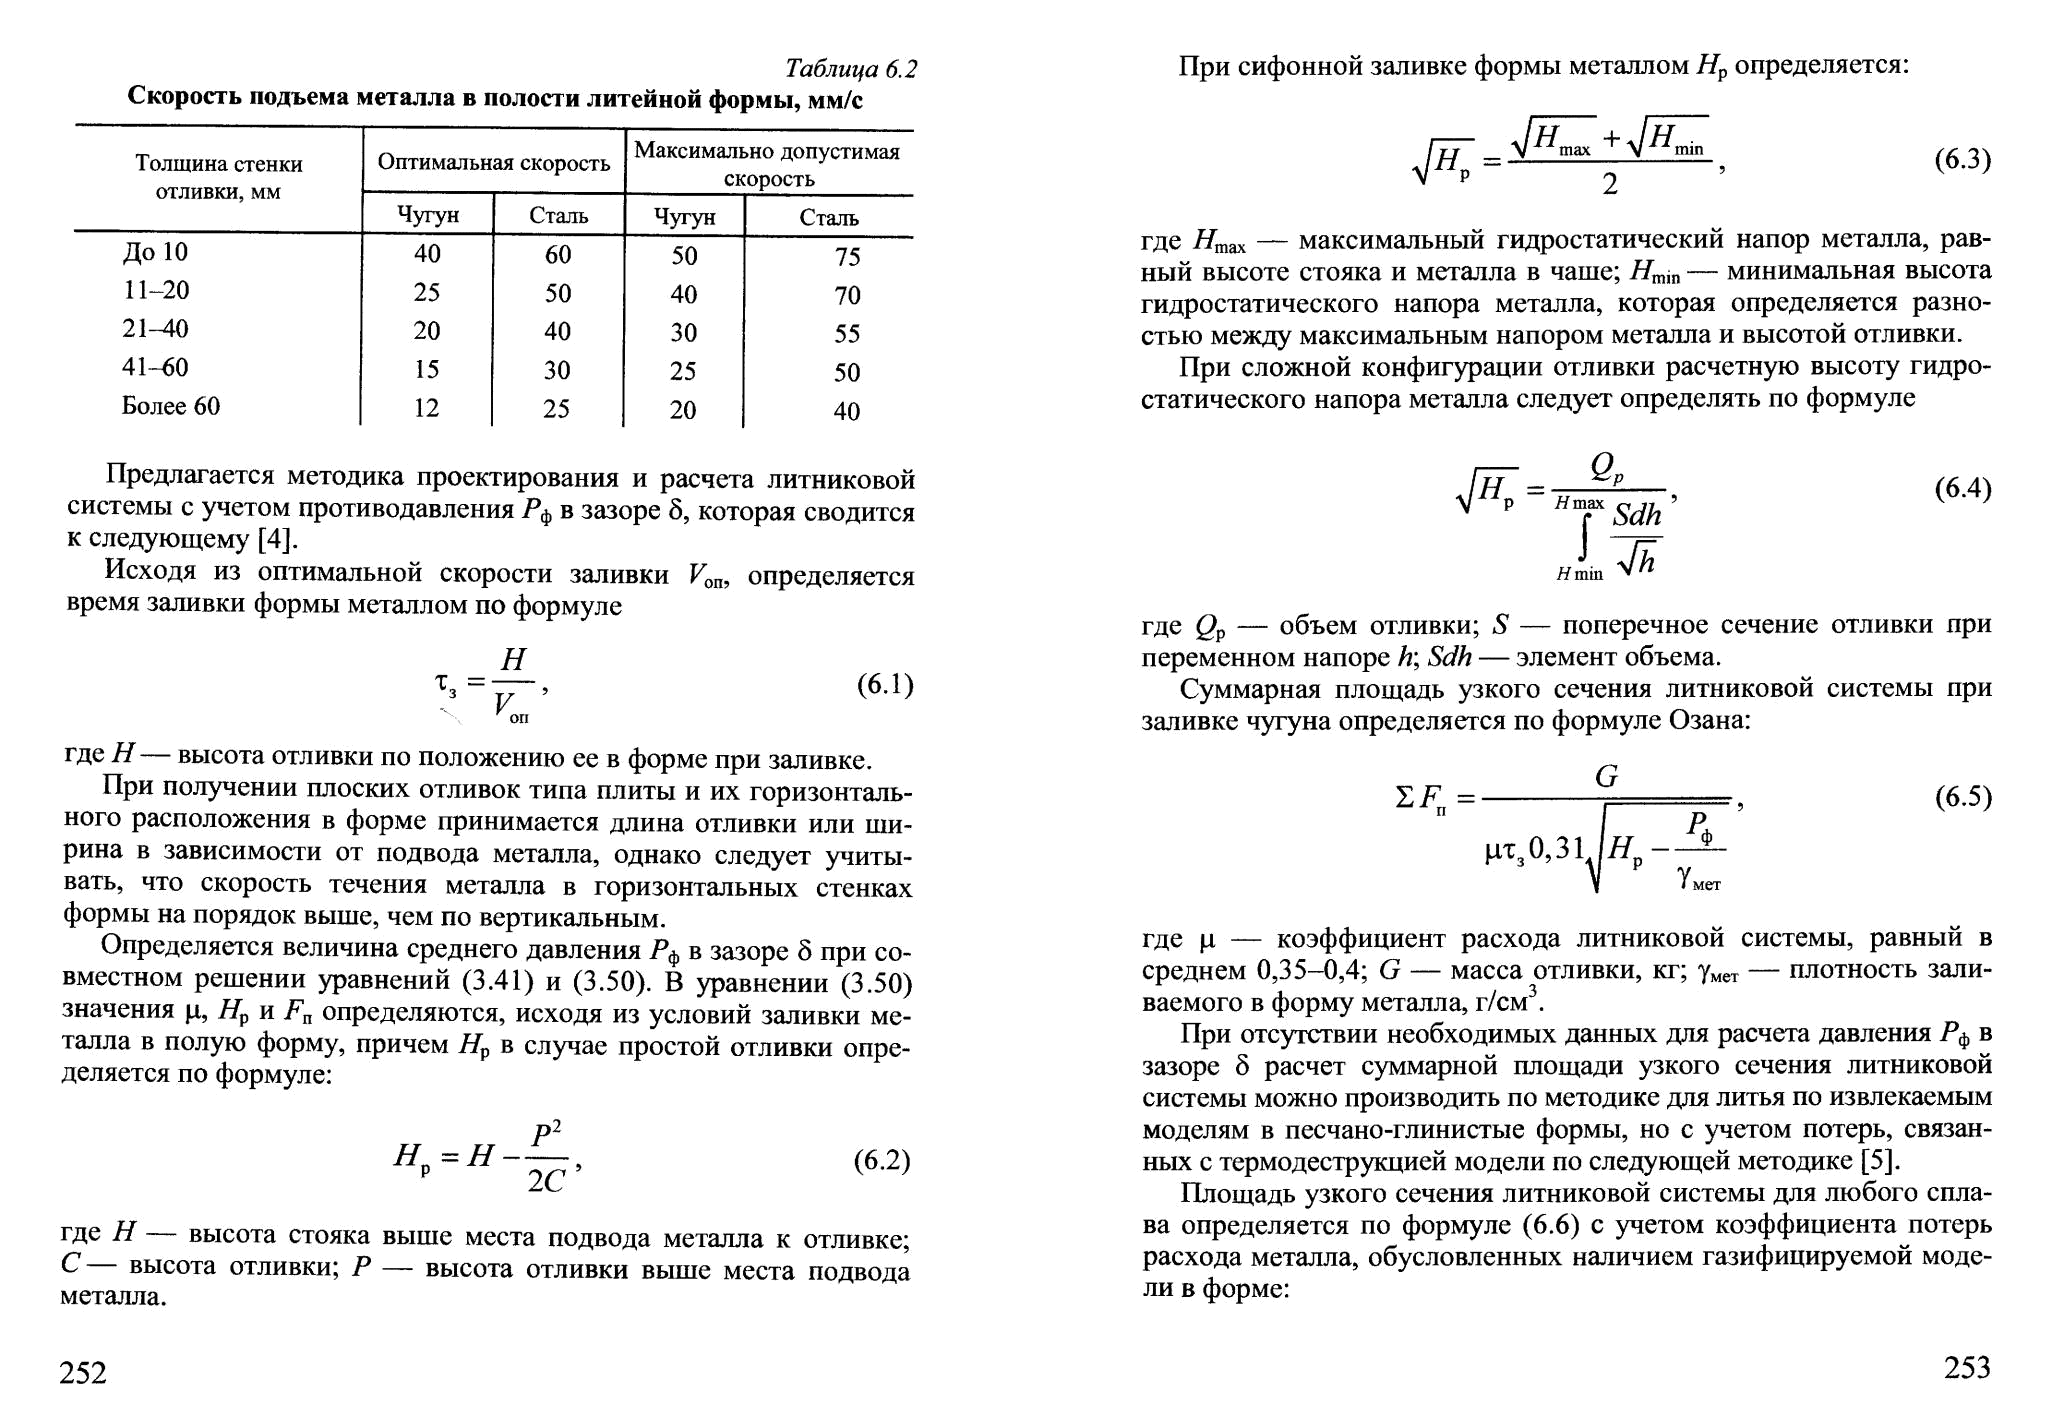 Таблица 6.2
Скорость подъема металла в полости литейной формы, мм/с
Толщина стенки отливки, мм | Оптимальная скорость | Максимально допустимая скорость
Чугун | Сталь | Чугун | Сталь
До 10 | 40 | 60 | 50 | 75
11–20 | 25 | 50 | 40 | 70
21–40 | 20 | 40 | 30 | 55
41–60 | 15 | 30 | 25 | 50
Более 60 | 12 | 25 | 20 | 40
Предлагается методика проектирования и расчета литниковой
системы с учетом противодавления Pф в зазоре δ, которая сводится
к следующему [4].
Исходя из оптимальной скорости заливки Vоп, определяется
время заливки формы металлом по формуле
τз = H / Vоп, (6.1)
где H — высота отливки по положению ее в форме при заливке.
При получении плоских отливок типа плиты и их горизонталь-
ного расположения в форме принимается длина отливки или ши-
рина в зависимости от подвода металла, однако следует учиты-
вать, что скорость течения металла в горизонтальных стенках
формы на порядок выше, чем по вертикальным.
Определяется величина среднего давления Pф в зазоре δ при со-
вместном решении уравнений (3.41) и (3.50). В уравнении (3.50)
значения μ, Hр и Fп определяются, исходя из условий заливки ме-
талла в полую форму, причем Hр в случае простой отливки опре-
деляется по формуле:
Hр = H − P² / 2C, (6.2)
где H — высота стояка выше места подвода металла к отливке;
C — высота отливки; P — высота отливки выше места подвода
металла.
252
При сифонной заливке формы металлом Hр определяется:
√Hр = (√Hmax + √Hmin) / 2, (6.3)
где Hmax — максимальный гидростатический напор металла, рав-
ный высоте стояка и металла в чаше; Hmin — минимальная высота
гидростатического напора металла, которая определяется разно-
стью между максимальным напором металла и высотой отливки.
При сложной конфигурации отливки расчетную высоту гидро-
статического напора металла следует определять по формуле
√Hр = Qр / ∫ Hmin Hmax Sdh / √h, (6.4)
где Qр — объем отливки; S — поперечное сечение отливки при
переменном напоре h; Sdh — элемент объема.
Суммарная площадь узкого сечения литниковой системы при
заливке чугуна определяется по формуле Озана:
ΣFп = G / (μτз0,31√(Hр − Pф / γмет)), (6.5)
где μ — коэффициент расхода литниковой системы, равный в
среднем 0,35–0,4; G — масса отливки, кг; γмет — плотность зали-
ваемого в форму металла, г/см³.
При отсутствии необходимых данных для расчета давления Pф в
зазоре δ расчет суммарной площади узкого сечения литниковой
системы можно производить по методике для литья по извлекаемым
моделям в песчано-глинистые формы, но с учетом потерь, связан-
ных с термодеструкцией модели по следующей методике [5].
Площадь узкого сечения литниковой системы для любого спла-
ва определяется по формуле (6.6) с учетом коэффициента потерь
расхода металла, обусловленных наличием газифицируемой моде-
ли в форме:
253